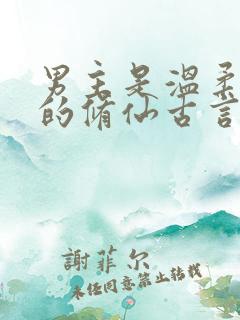 男主是温柔
的修仙古言
謝菲尔
未经同意禁止转载